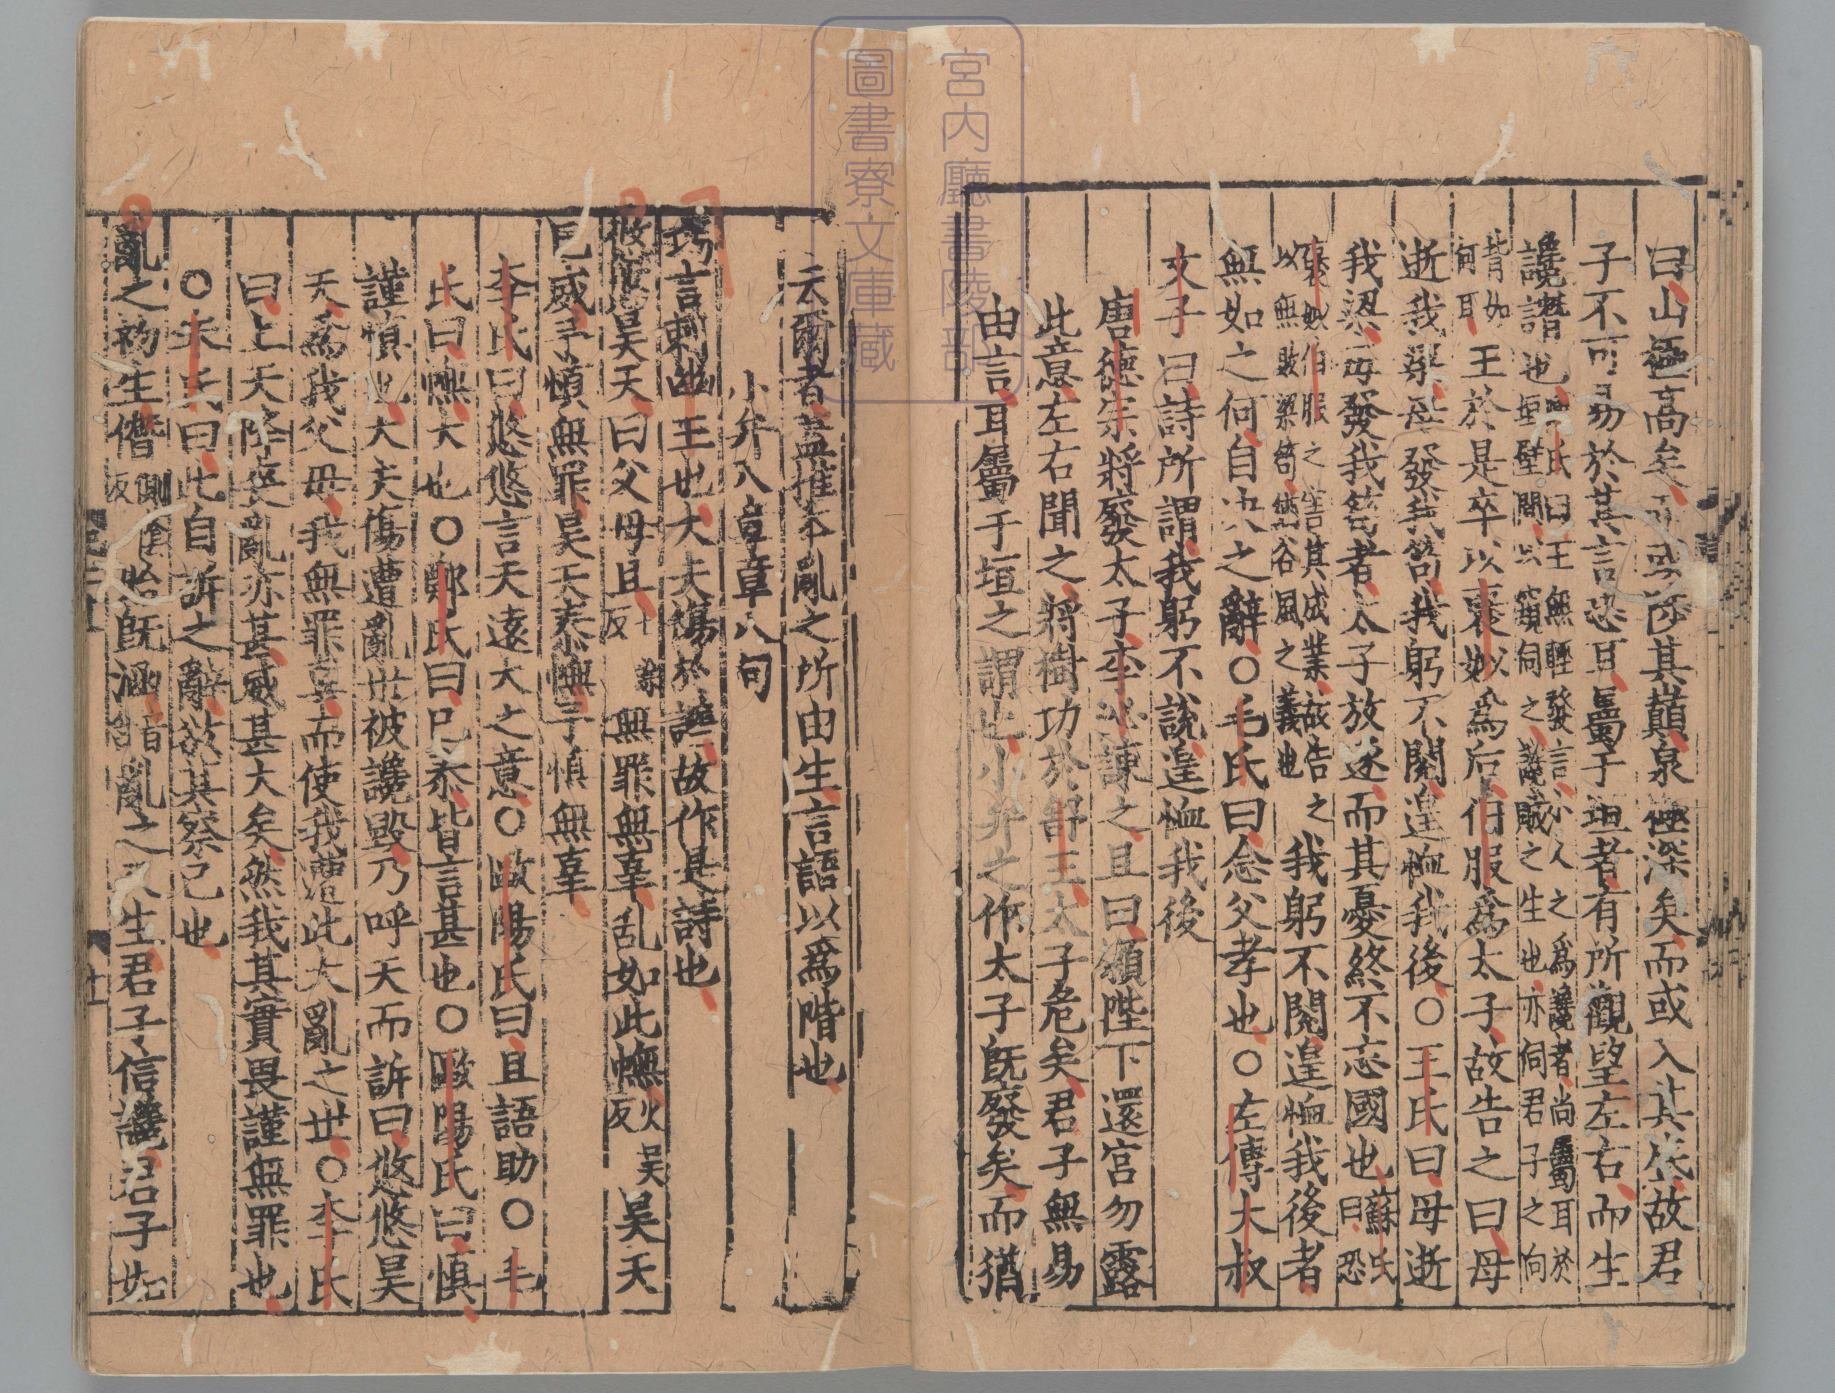 曰山極高矣而或涉其巔泉極深矣而或入其底故君
子不可易於其言恐耳屬于垣者有所觀望左右而生
讒譖也王氏曰王無輕發言小人之爲讒者尚屬耳於垣壁間以窺伺之讒賊之生也亦伺君子之向
背如何耳王於是卒以褒姒爲后伯服爲太子故告之曰母
逝我梁母發我笱我躬不閱遑恤我後○王氏曰母逝
我梁母發我笱者太子放逐而其憂終不忘國也蘇氏曰恐
褒姒伯服之害其成業故告之以無敗梁笱猶谷風之義也我躬不閱遑恤我後者
無如之何自决之辭○毛氏曰念父孝也○左傳大叔
文子曰詩所謂我躬不說遑恤我後
唐德宗將廢太子李泌諫之且曰願陛下還宮勿露
此意左右聞之將樹功於舒王太子危矣君子無易
由言耳屬于垣之謂也小弁之作太子旣廢矣而猶
云爾者蓋推本亂之所由生言語以爲階也
小弁八章章八句
巧言刺幽王也大夫傷於讒故作是詩也
悠悠昊天曰父母且無罪無辜乱如此憮火吴反昊天
已威予愼無罪昊天泰憮予愼無辜
李氏曰悠悠言天遠大之意○歐陽氏曰且語助○毛
氏曰憮大也○鄭氏曰已泰皆言甚也○歐陽氏曰愼
謹愼也大夫傷遭亂世被讒毀乃呼天而訴曰悠悠昊
天爲我父母我無罪辜而使我遭此大亂之世○李氏
曰上天降喪亂亦甚威甚大矣然我其實畏謹無罪也
○朱氏曰此自訴之辭欲其察己也
亂之初生僭側蔭反始旣涵音含亂之又生君子信讒君子如
宮内廳書陵部
圖書寮文庫藏